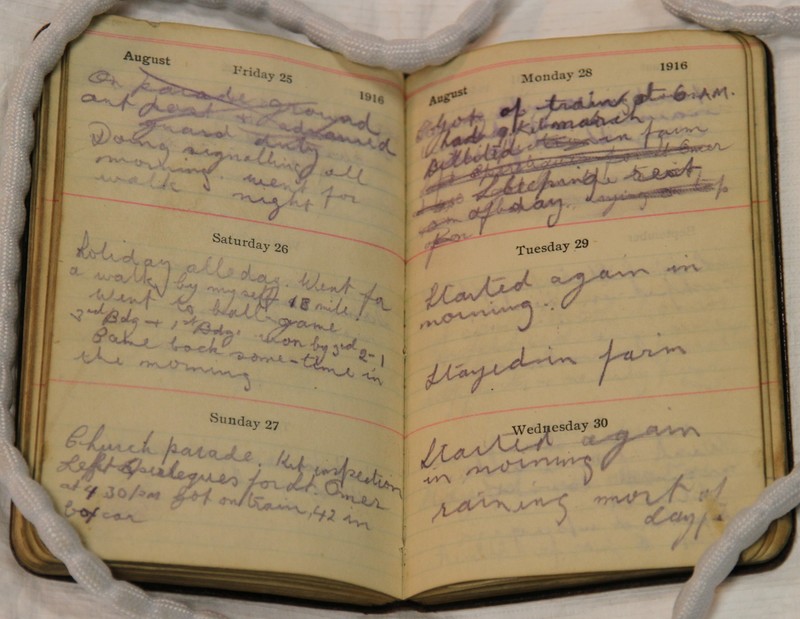 August
Friday 25
1916
On parade ground
ant peat & advanced
guard duty
Doing signalling all
morning went for
walk night
Saturday 26
Holiday all day. Went for
a walk by myself 18 mile.
Went to ball game
3rd Bdg + 1st Bdg. won by 3rd 2-1
Came back some-time in
the morning
Sunday 27
Church parade. Kit inspection
Left for St. Omer
at 4.30 pm Got on train, 42 in
boxcar
August
Monday 28
1916
Got of train at 6 A.M.
had a march
Billited in farm
Sleeping & rest
of day.
for
Tuesday 29
Started again in
morning.
Stayed in farm
Wednesday 30
Started again
in morning
raining most of
day